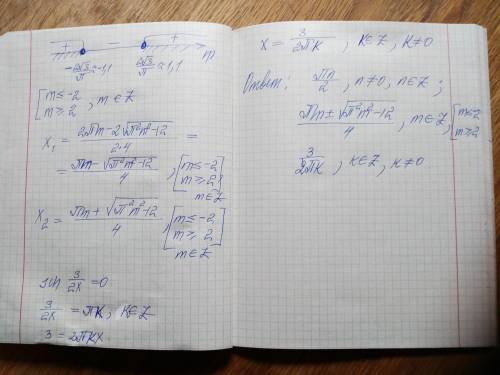 + − + m
-2√3/π ≈ -1,1 2√3/π ≈ 1,1
[m ≤ -2
m ≥ 2 , m ∈ Z
x₁ = (2πm - 2√(π²m²-12))/(2·4) =
= (πm - √(π²m²-12))/4 , [m ≤ -2
m ≥ 2
m ∈ Z
x₂ = (πm + √(π²m²-12))/4 , [m ≤ -2
m ≥ 2
m ∈ Z
sin 3/2x = 0
3/2x = πk, k ∈ Z
3 = 2πkx
x = 3/2πk , k ∈ Z, k ≠ 0
Ответ: πn/2 , n ≠ 0, n ∈ Z ;
(πm ± √(π²m²-12))/4 , m ∈ Z, [m ≤ -2
m ≥ 2 ;
3/2πk , k ∈ Z, k ≠ 0